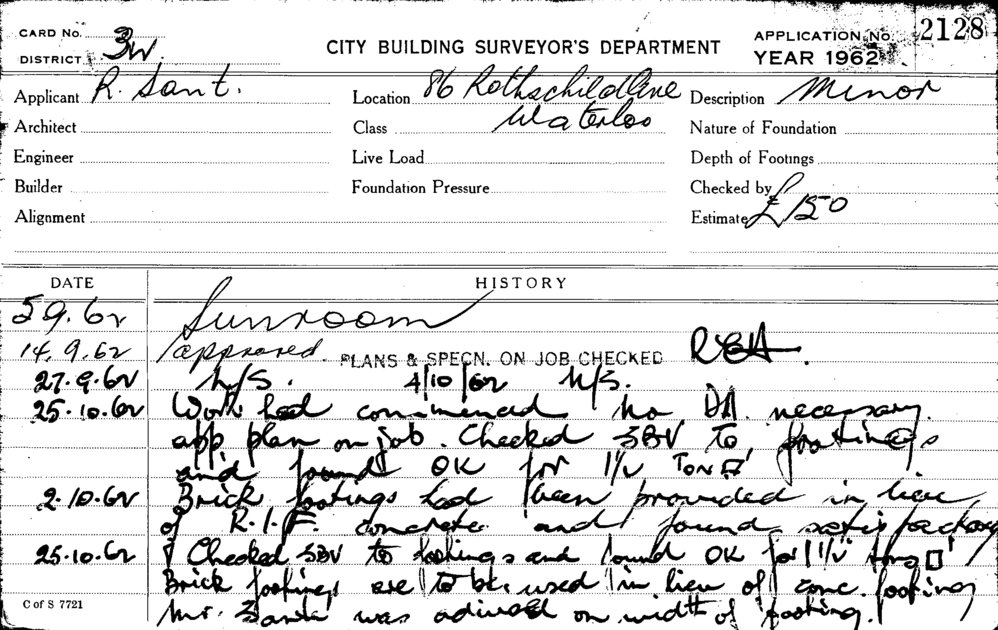 CARD No.
DISTRICT 3W.
CITY BUILDING SURVEYOR'S DEPARTMENT
APPLICATION No. 2128
YEAR 1962
Applicant R. Sant.
Location 86 Rothschild Ave
Description Minor
Architect
Class Waterloo
Nature of Foundation
Engineer
Live Load
Depth of Footings
Builder
Foundation Pressure
Checked by
Alignment
Estimate £150
DATE HISTORY
5 9. 62 Sunroom
14. 9. 62 approved. PLANS & SPECN. ON JOB CHECKED
27. 9. 62 N/S. 4/10/62 N/S.
25. 10. 62 Work had commenced No DA necessary.
app plan on job. Checked SBV to footings
and found OK for 1½ Ton □'
2. 10. 62 Brick footings had been provided in lieu
of R.I.F. concrete and found satisfactory
25. 10. 62 Checked SBV to footings and found OK for 1½ tons □'
Brick footings are to be used in lieu of conc. footing
Mr. was advised on width of footing.
C of S 7721